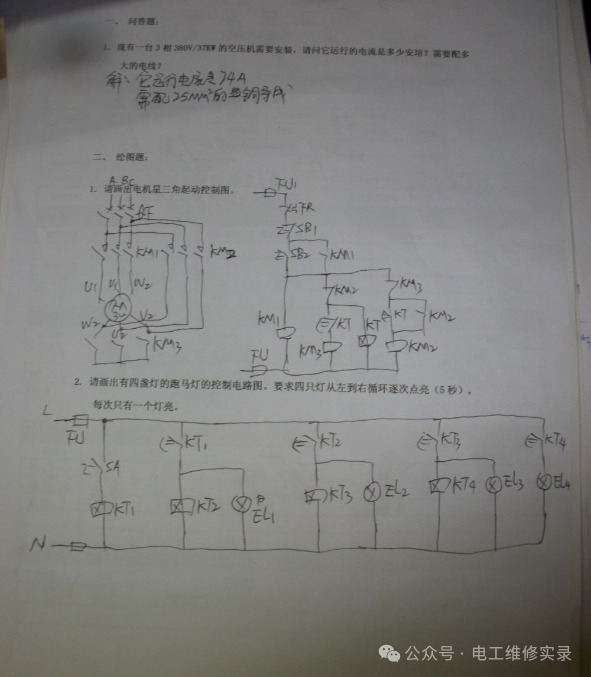 一、问答题：
1. 现有一台3相380V/37KW的空压机需要安装，请问它运行的电流是多少安培？需要配多
大的电线？
解：它运行电流是74A
需配25MM²的
二、绘图题：
1. 请画出电机星三角起动控制图。
A B C
QF
KM1
KM2
U1 V1 W2
W2 U2 V2
KM3
FU1
FR
SB1
SB2 KM1
KM2 KM3
KT KT KT KM2
KM1 KM3 KM2
FU
2. 请画出有四盏灯的跑马灯的控制电路图。要求四只灯从左到右循环逐次点亮（5秒），
每次只有一个灯亮。
L
FU
KT1 KT2 KT3 KT4
SA
KT1 KT2 EL1 KT3 EL2 KT4 EL3 EL4
N
公众号·电工维修实录